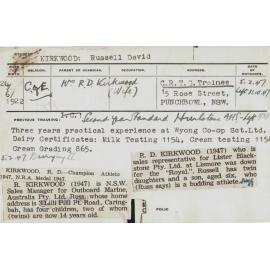 KIRKWOOD: Russell David
RELIGION.
PARENT OR GUARDIAN.
24/
6/
1922
C of E
Mrs R.D. Kirkwood
(Wife)
C.R.T.S. Trainee
15 Rose Street,
PUNCHBOWL, NSW.
5.2.47
PREVIOUS TRAINING:
Second year Standard
Three years practical experience at Wyong Co-op Set.Ltd.
Dairy Certificates: Milk Testing 1154, Cream testing
Cream Grading 865.
5.2.47
R. D. KIRKWOOD (1947) who is
sales representative for Lister Black-
stone Pty. Ltd. at Lismore was down
for the "Royal". Russell has twin
daughters and a son, aged six, who
(Russ says) is a budding athlete.
R. D.—Champion Athlete
1947, N.R.A. Medal 1947.
R. KIRKWOOD (1947) is N.S.W.
Sales Manager for Outboard Marine,
Australia Pty Ltd. Russ, whose home
address is Port Road, Caring-
bah, has four children, two of whom
(twins) are now 14 years old.